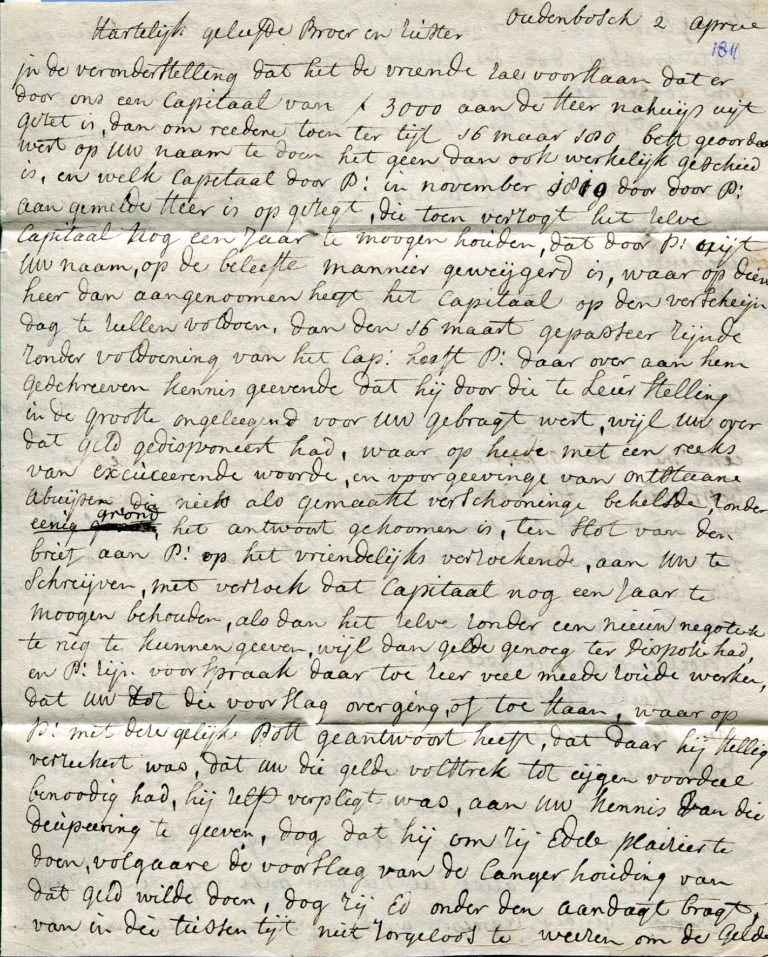 Oudenbosch 2 april
1811
Hartelijk geliefde Broer en Zuster
in de veronderstelling dat het de vriende zal voorstaan dat er
door ons een Capitaal van ƒ 3000 aan de Heer nahuijs uijt
gezet is, dan om reedene toen ter tijt 16 maar 1810 best geoordeelt
wert op UW naam te doen het geen dan ook werkelijk geschied
is, en welk Capitaal door P: in november 1810 door door P:
aan gemelde Heer is op gezegt, die toen verzogt het zelve
Capitaal nog een Jaar te moogen houden, dat door P: uijt
UW naam, op de beleefste mannier geweijgerd is, waar op dien
heer dan aangenoomen heeft het Capitaal op den verscheijn
dag te zullen voldoen, dan den 16 maart gepasseer zijnde
zonder voldoening van het Cap: heeft P: daar over aan hem
geschreeven kennis geevende dat hij door die te Leur stelling
in de grootte ongeleegend voor UW gebragt wert, wijl UW over
dat geld gedisponeert had, waar op heede met een reeks
van excuceerende woorde, en voorgeevinge van ontstaane
abuijsen die niets als gemaakt verschooninge behelsde, zonder
eenig grond, het antwoort gekoomen is, ten slot van den
brief aan P: op het vriendelijks verzoekende, aan UW te
schreijven, met verzoek dat Capitaal nog een Jaar te
moogen behouden, als dan het zelve zonder een nieuw negotiatie
te rug te kunnen geeven, wijl dan gelde genoeg ter dispositie had,
en P: zijn voorspraak daar toe zeer veel meede zoude werken,
dat UW tot die voorslag overging, of toe staan, waar op
P: met deze gelijke Post geantwoort heeft, dat daar hij stellig
verzeekert was, dat UW die gelde volstrek tot eijgen voordeel
benoodig had, hij zelf verpligt was, aan UW kennis van die
decipeering te geeven, dog dat hij om zij Edele plaizier te
doen, volgaare de voorslag van de langer houding van
dat geld wilde doen, dog zij Ed onder den aandagt bragt,
van in die tussen tijt niet zorgeloos te weezen om de gelde